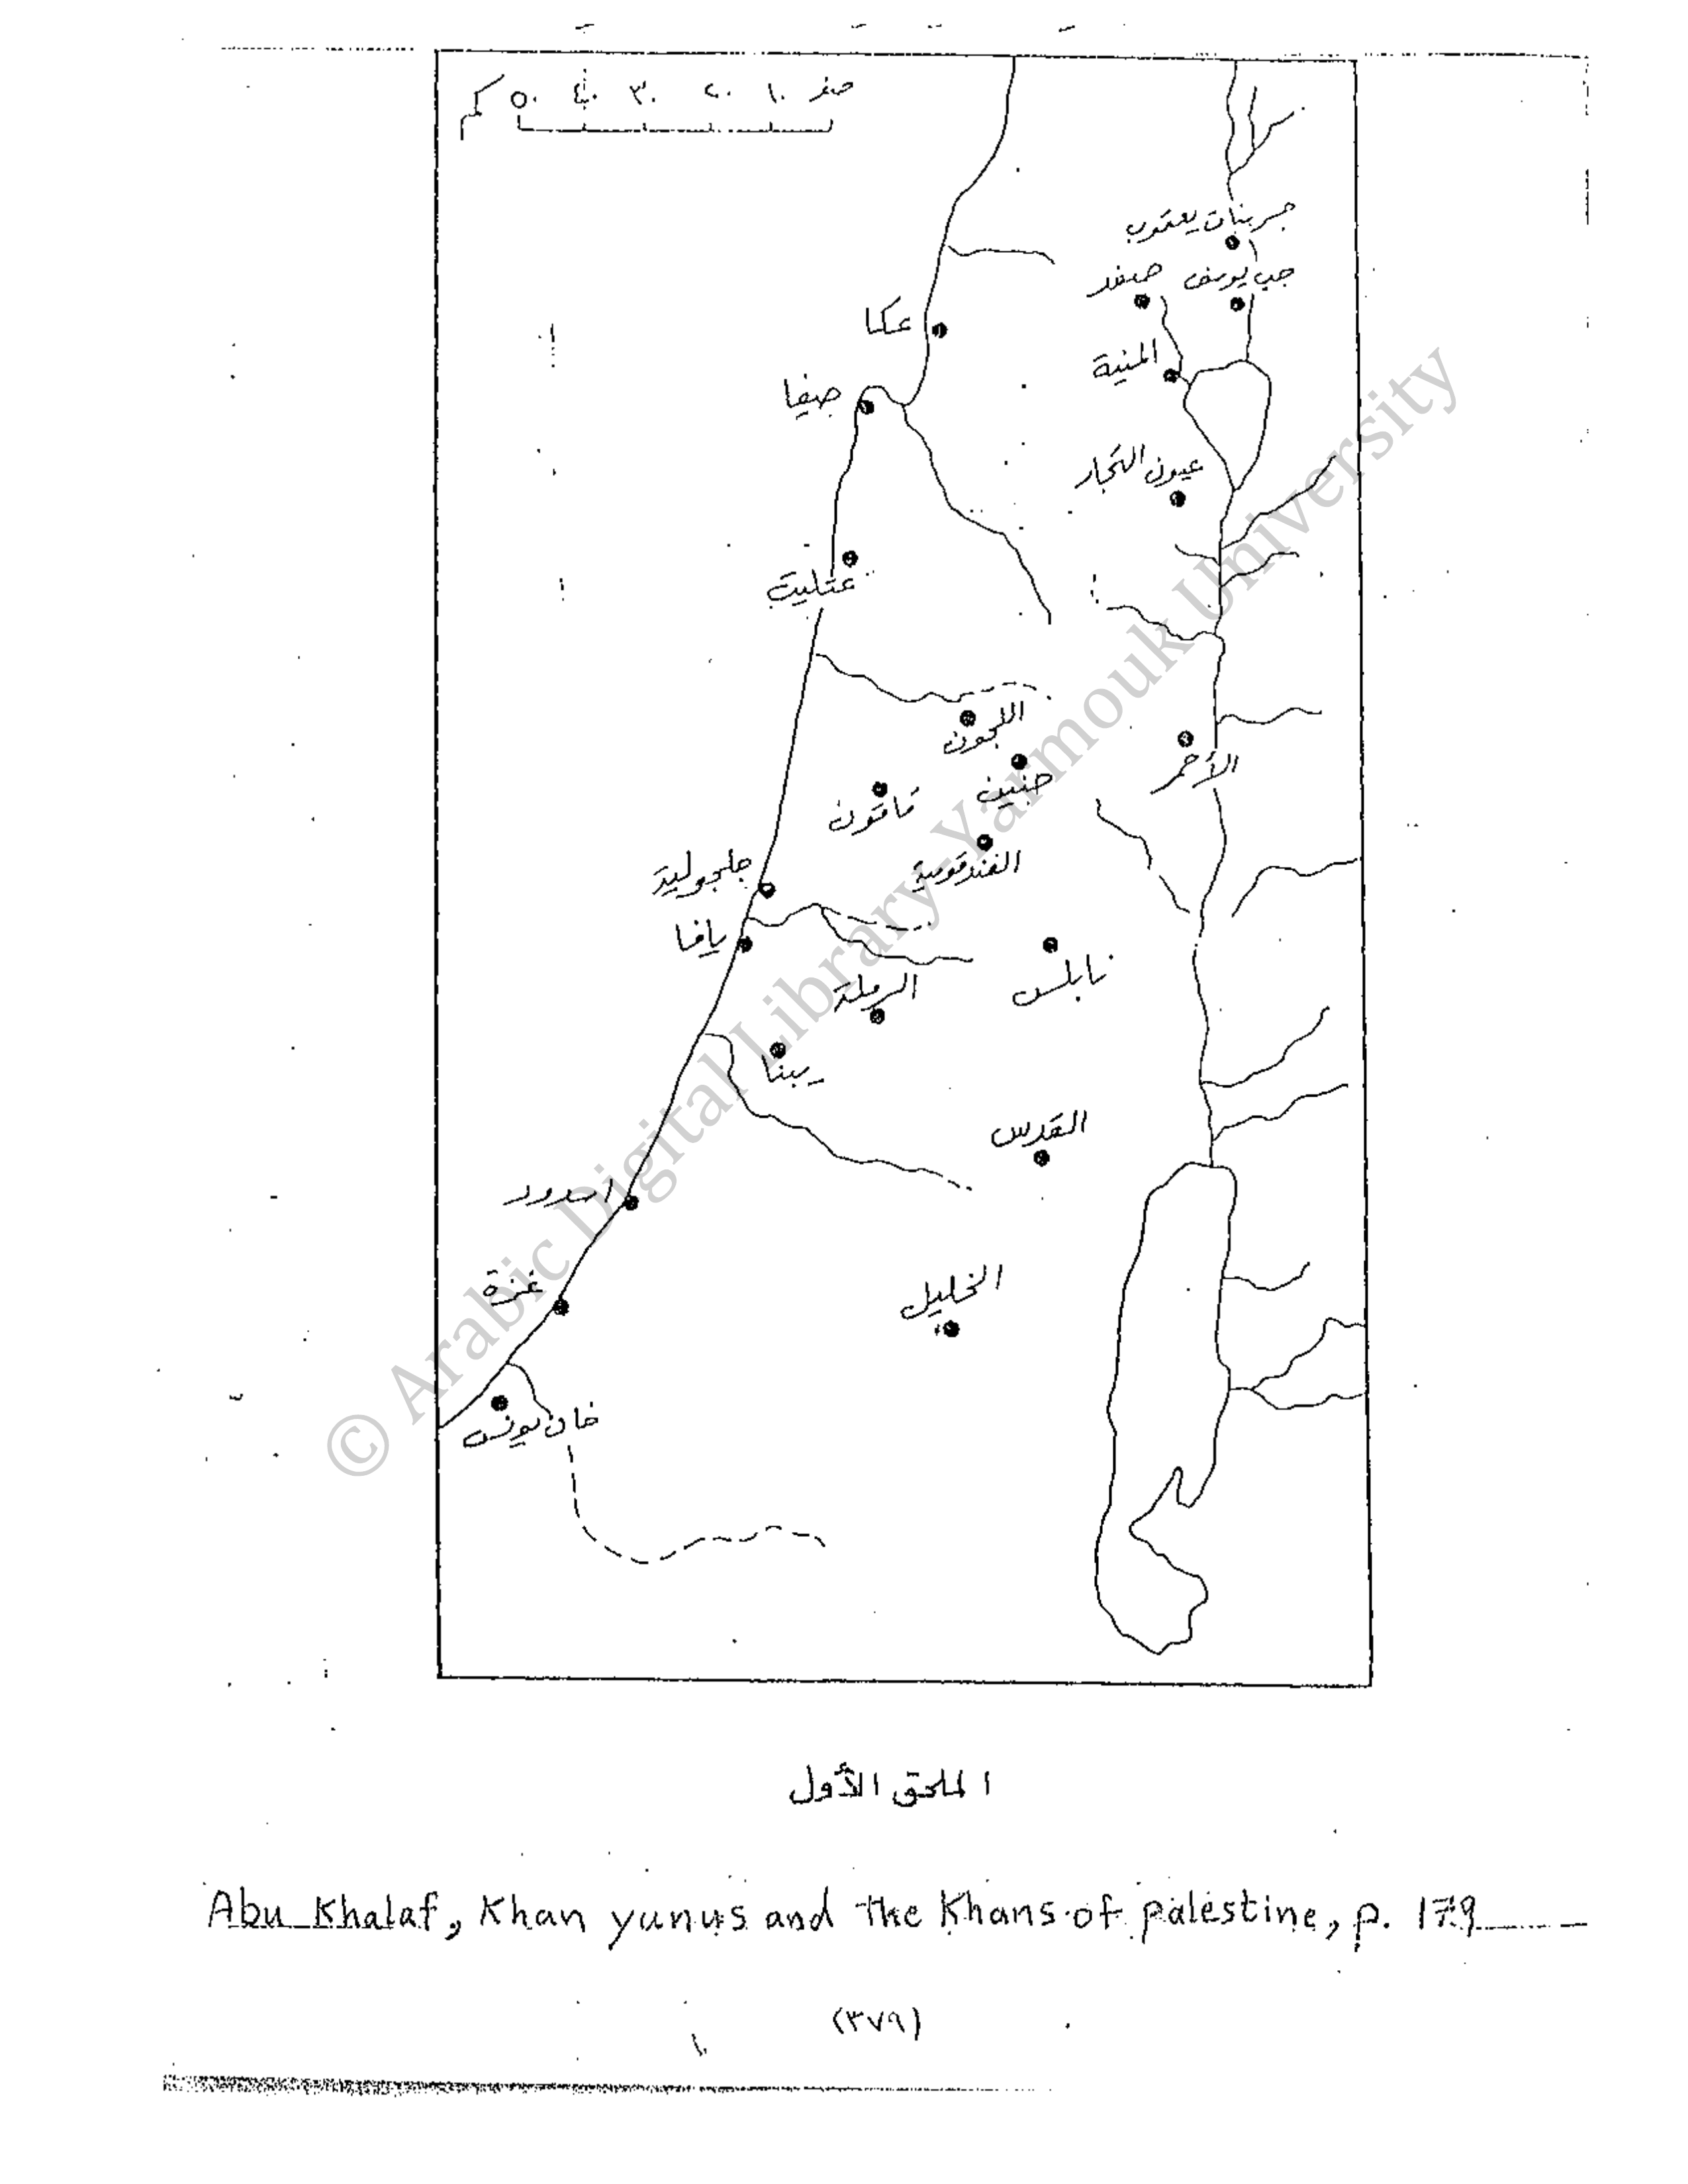 صفر ١٠ ٢٠ ٣٠ ٤٠ ٥٠ كم
جسر بنات يعقوب
جب يوسف
صفد
عكا
المنية
حيفا
عيون التجار
عتليت
اللجون
الأحمر
جنين
قاقون
الفندقومية
جلجولية
يافا
نابلس
الرملة
يبنا
القدس
اسدود
الخليل
غزة
خان يونس
© Arabic Digital Library-Yarmouk University
الملحق الأول
Abu Khalaf, Khan yunus and the Khans of palestine, p. 179
(٣٧٩)